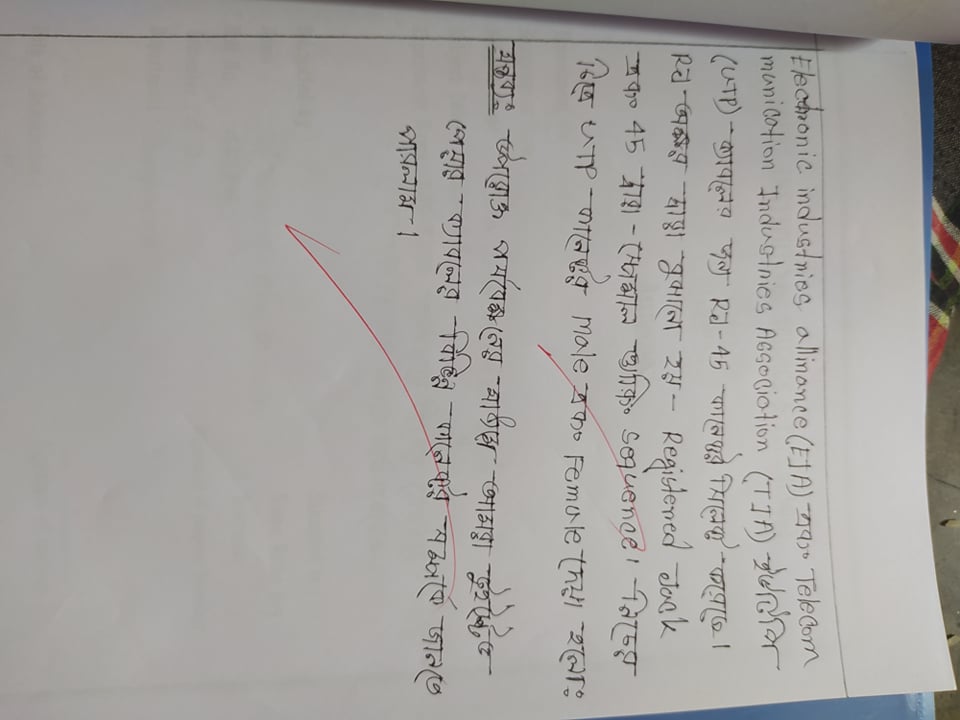 Electronic industries allinance (EIA) এবং Telecom
munication Industries Association (TIA) ইউটিপি
(UTP) ক্যাবলের জন্য RJ-45 কানেক্টর সিলেক্ট করেছে।
RJ অক্ষর দ্বারা বুঝানো হয় - Registered Jack
এবং 45 দ্বারা ফিজিক্যাল sequence। নিচের
চিত্রে UTP কানেক্টর Male এবং Female দেয়া হলোঃ
মন্তব্যঃ উপরোক্ত আমরা টুইস্টেড
পেয়ার ক্যাবলের বিভিন্ন কানেক্টর সম্পর্কে জানতে
পারলাম।